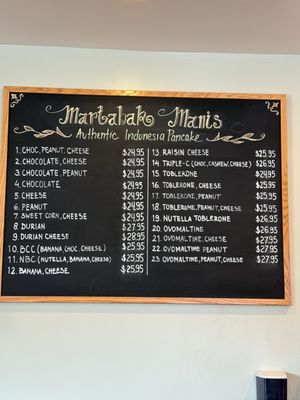 Martabak Manis
Authentic Indonesia Pancake
1. CHOC, PEANUT, CHEESE $24.95
2. CHOCOLATE, CHEESE $24.95
3. CHOCOLATE, PEANUT $24.95
4. CHOCOLATE $24.95
5. CHEESE $24.95
6. PEANUT $24.95
7. SWEET CORN, CHEESE $24.95
8. DURIAN $27.95
9. DURIAN CHEESE $28.95
10. BCC (BANANA, CHOC, CHEESE) $25.95
11. NBC (NUTELLA, BANANA, CHEESE) $25.95
12. BANANA, CHEESE $25.95
13. RAISIN CHEESE $25.95
14. TRIPLE-C (CHOC, CASHEW, CHEESE) $26.95
15. TOBLERONE $24.95
16. TOBLERONE, CHEESE $25.95
17. TOBLERONE, PEANUT $25.95
18. TOBLERONE, PEANUT, CHEESE $25.95
19. NUTELLA TOBLERONE $26.95
20. OVOMALTINE $26.95
21. OVOMALTINE, CHEESE $27.95
22. OVOMALTINE PEANUT $27.95
23. OVOMALTINE, PEANUT, CHEESE $27.95